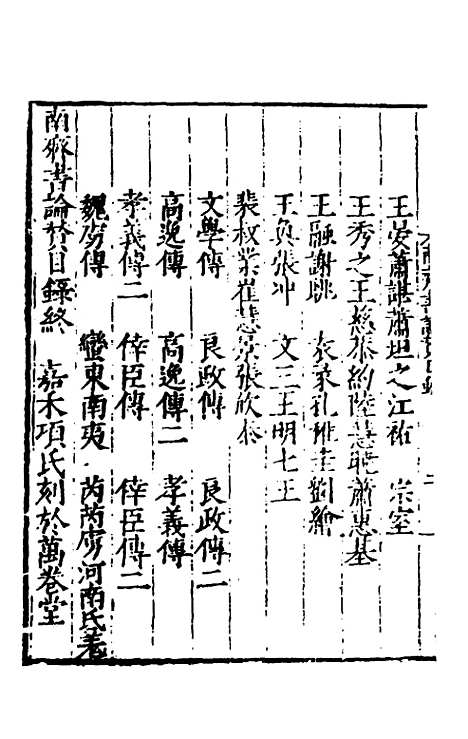 王晏蕭諶蕭坦之江祏　宗室
王秀之王慈蔡約陸慧曉蕭惠基
王融謝朓　袁彖孔稚圭劉繪
王奐張冲　文二王明七王
裴叔業崔慧景張欣泰
文學傳　良政傳　良政傳二
高逸傳　高逸傳二　孝義傳
孝義傳二　倖臣傳　倖臣傳二
魏虜傳　蠻東南夷　芮芮虜河南氐羌
南齊書論贊目錄終　嘉禾項氏刻於萬卷堂